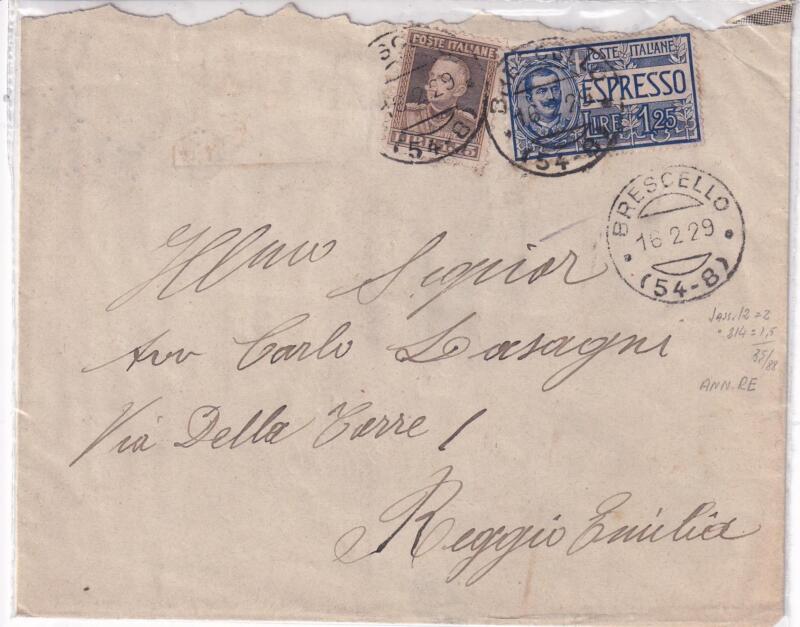 POSTE ITALIANE
POSTE ITALIANE
ESPRESSO
LIRE 1,25
(54-8)
BRESCELLO
16 2
(54-8)
BRESCELLO
16.2.29
(54-8)
Illmo Signor
Avv Carlo Lasagni
Via Della Torre 1
Reggio Emilia
Sass. 12 = 2
" 214 = 1,5
35/88
ANN. RE